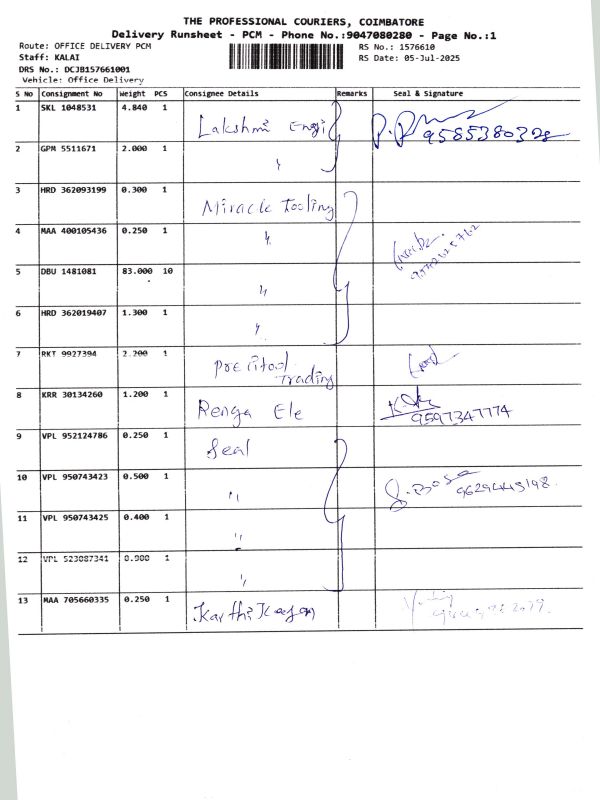 THE PROFESSIONAL COURIERS, COIMBATORE
Delivery Runsheet - PCM - Phone No.:9047080280 - Page No.:1
Route: OFFICE DELIVERY PCM
Staff: KALAI
DRS No.: DCJB157661001
Vehicle: Office Delivery
RS No.: 1576610
RS Date: 05-Jul-2025
S No Consignment No Weight PCS Consignee Details Remarks Seal & Signature
1 SKL 1048531 4.840 1 Lakshmi Engi 9585380328
2 GPM 5511671 2.000 1 "
3 HRD 362093199 0.300 1 Miracle Tooling
4 MAA 400105436 0.250 1 "
5 DBU 1481081 83.000 10 "
6 HRD 362019407 1.300 1 "
7 RKT 9927394 2.200 1 Precitool Trading
8 KRR 30134260 1.200 1 Renga Ele 9597347774
9 VPL 952124786 0.250 1 Seal
10 VPL 950743423 0.500 1 " S. Bose 9629443198
11 VPL 950743425 0.400 1 "
12 VPL 523087341 0.900 1 "
13 MAA 705660335 0.250 1 Karthikeyan